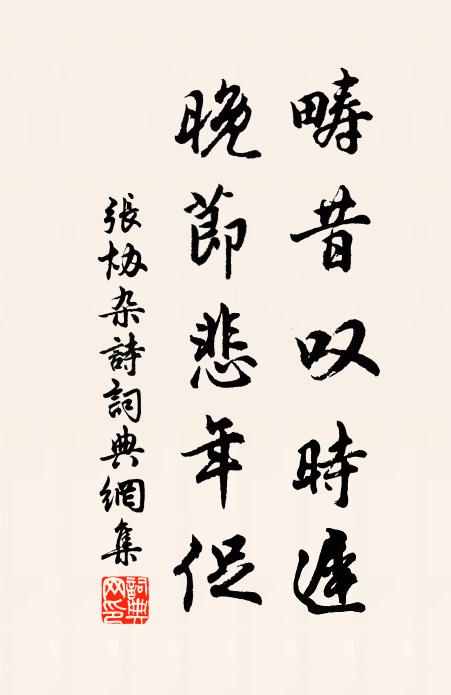 疇昔叹時遲
晚節悲年促
張协杂詩詞典網集
詞典网印